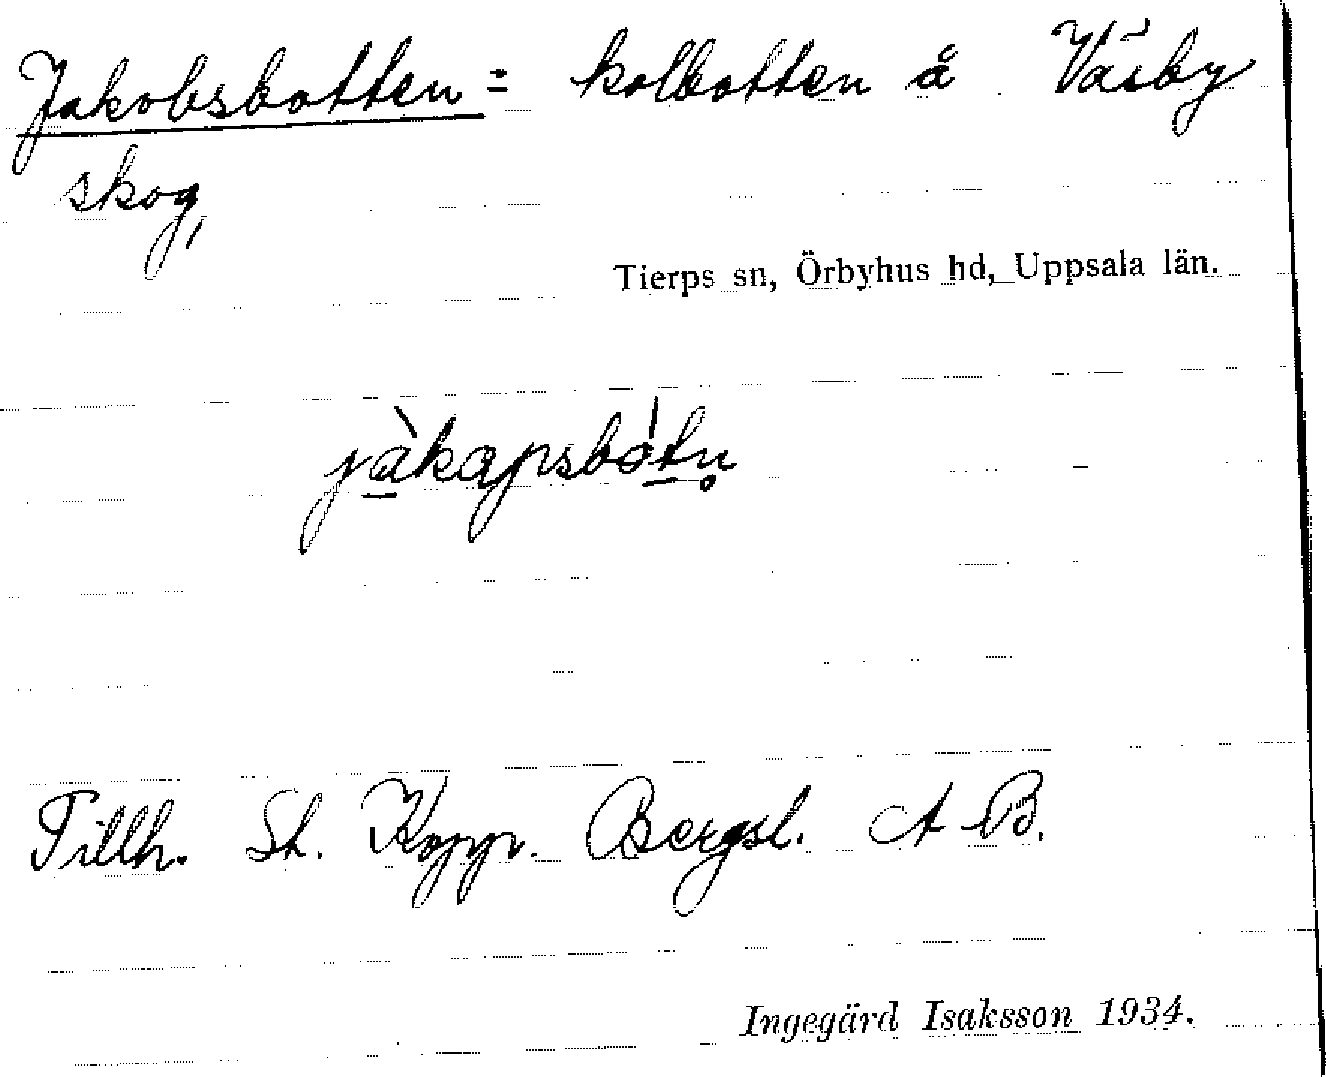 Jakobsbotten = kolbotten å Väsby
skog,
Tierps sn, Örbyhus hd, Uppsala län.
jàkapsbótn̥
Tillh. St. Kopp. Bergsl. A B.
Ingegärd Isaksson 1934.